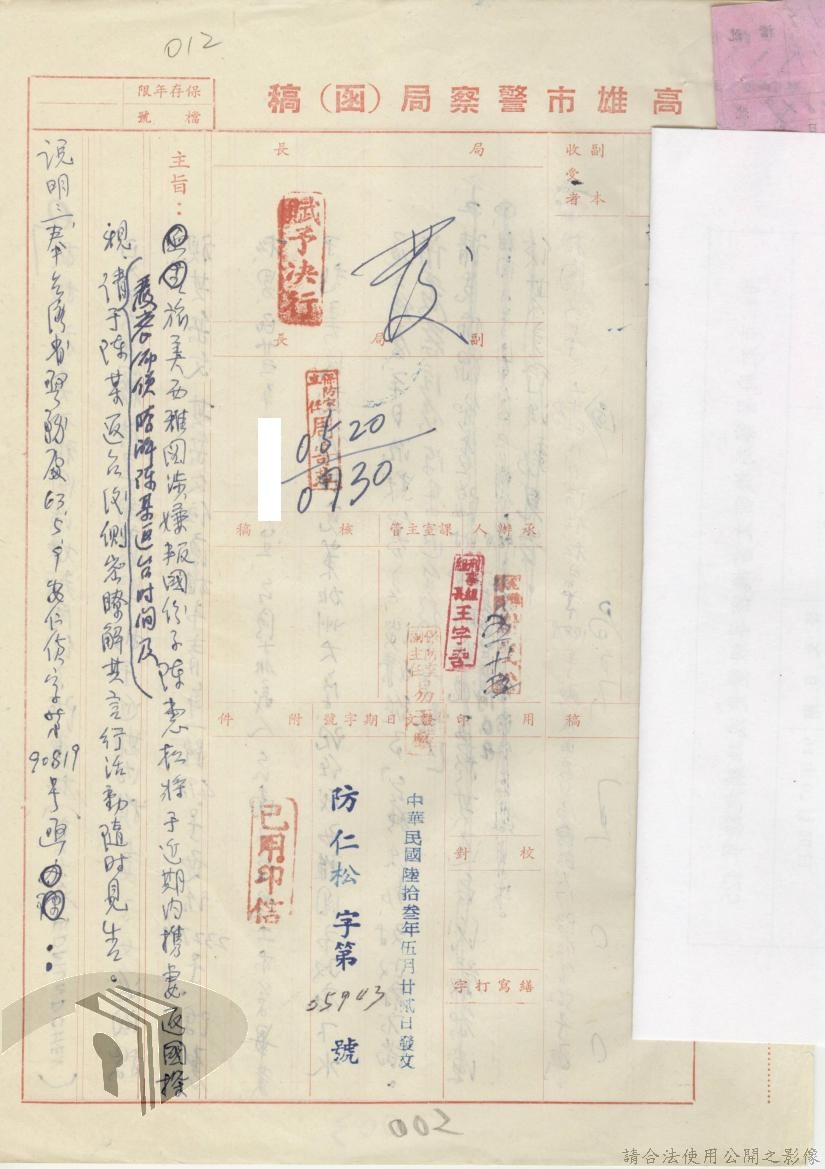 012
高雄市警察局（函）稿
保存年限
檔號
副本
收受者
局長
賦予決行
發
副局長
保防室
主任
0520
0930
承辦人
課室主管
核稿
刑事組
組長王字
用印
發文日期字號
附件
稿
中華民國陸拾叁年伍月廿貳日發文
防仁松字第05943號
已用印信
校對
繕寫打字
主旨：旅美西雅圖涉嫌叛國份子陳忠松將于近期內攜妻返國探
視，請于陳某返台後側密瞭解其言行活動隨時見告。
嚴密佈偵防瞭解陳某返台时间及
說明：奉台灣省警務處63.5.9安仁偵字第90819号函
002
請合法使用公開之影像